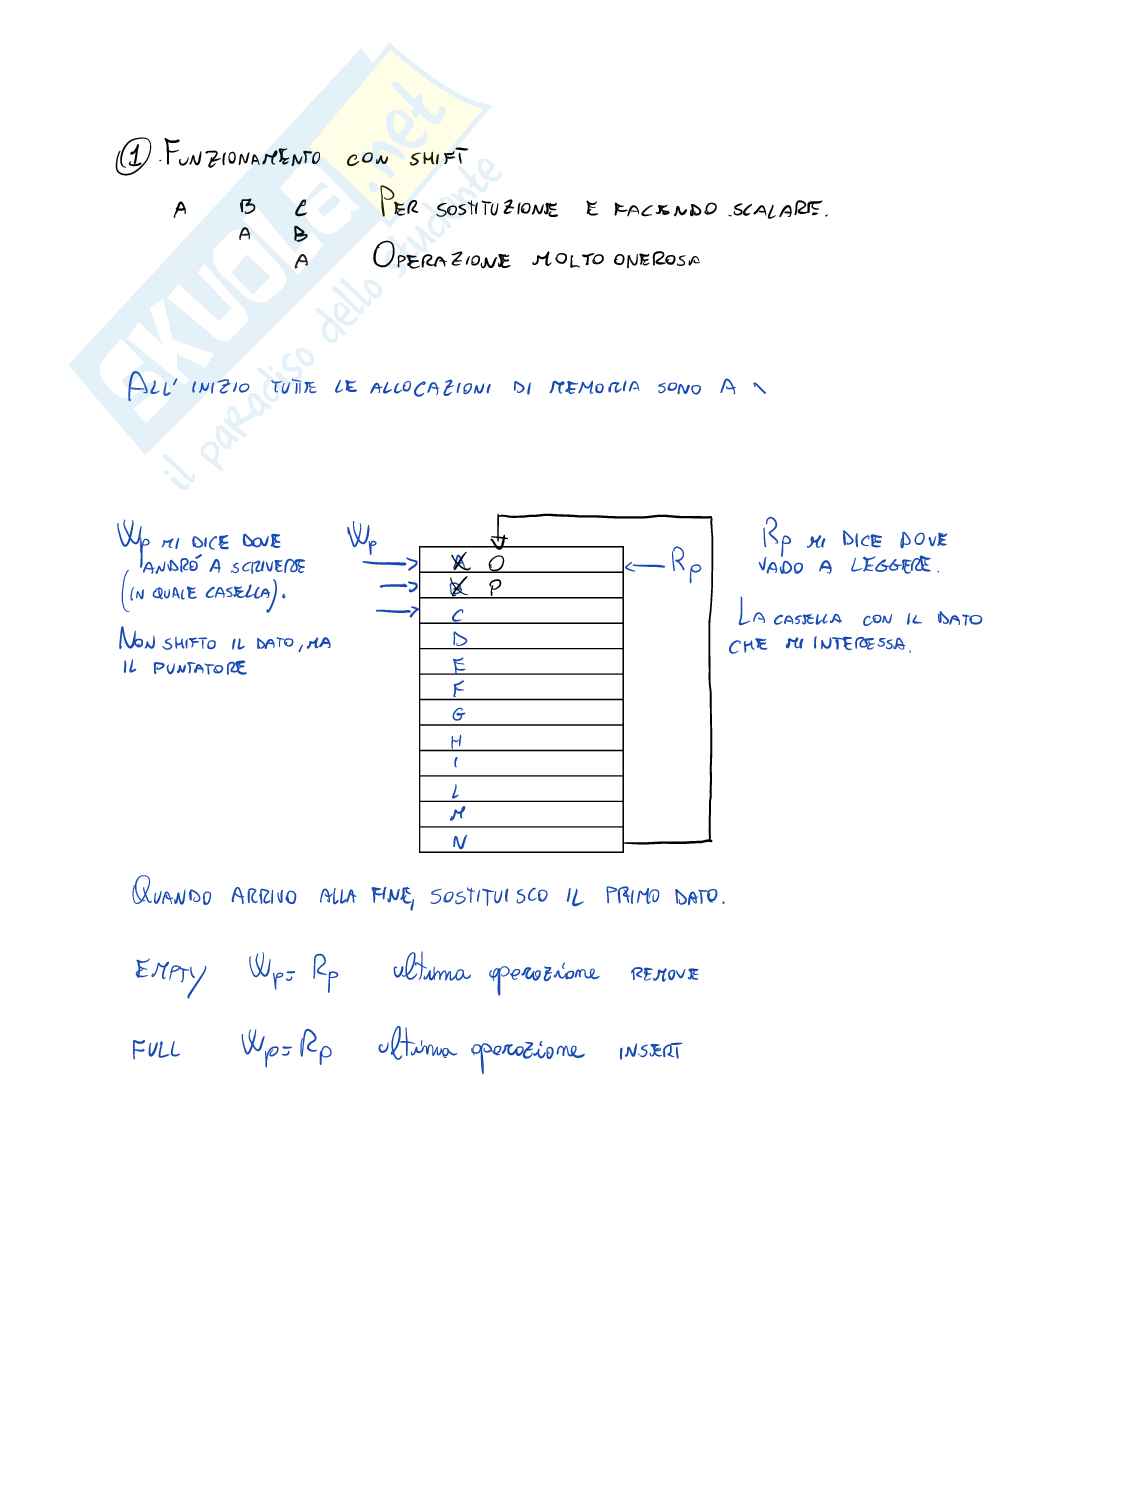 SKUOLA.net
il paradiso dello studente
① FUNZIONAMENTO CON SHIFT
A B C PER SOSTITUZIONE E FACENDO SCALARE.
A B
A OPERAZIONE MOLTO ONEROSA
ALL' INIZIO TUTTE LE ALLOCAZIONI DI MEMORIA SONO A
Wp MI DICE DOVE
ANDRÓ A SCRIVERE
(IN QUALE CASELLA).
NON SHIFTO IL DATO, MA
IL PUNTATORE
Wp
A O
B P
C
D
E
F
G
H
I
L
M
N
Rp
Rp MI DICE DOVE
VADO A LEGGERE.
LA CASELLA CON IL DATO
CHE MI INTERESSA.
QUANDO ARRIVO ALLA FINE, SOSTITUISCO IL PRIMO DATO.
EMPTY Wp= Rp ultima operazione REMOVE
FULL Wp=Rp ultima operazione INSERT